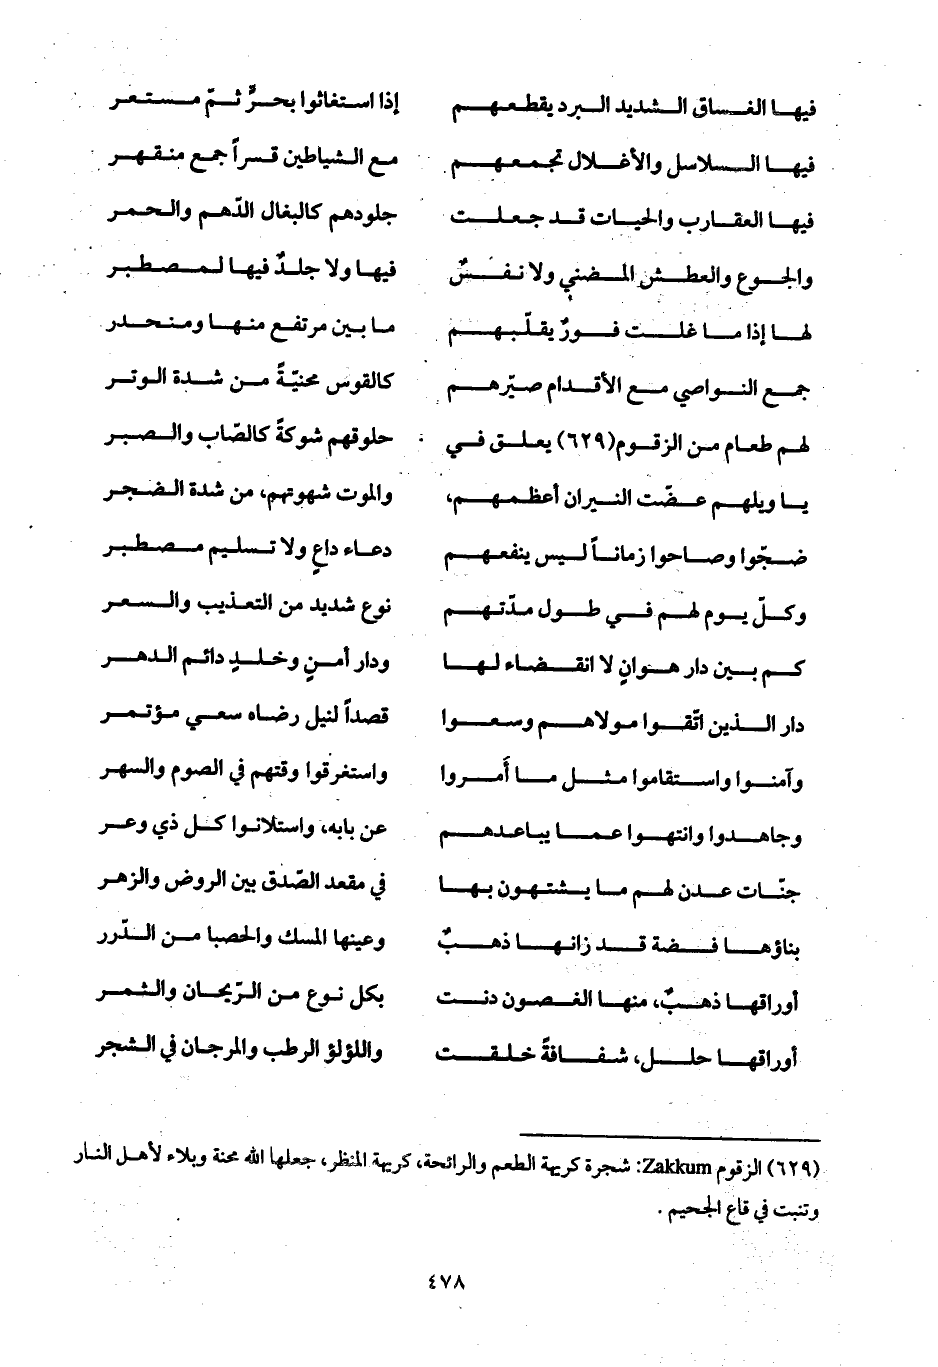 فيها الغساق الشديد البرد يقطعهم إذا استغاثوا بحرٍّ ثمّ مستعر
فيها السلاسل والأغلال تجمعهم مع الشياطين قسراً جمع منقهر
فيها العقارب والحيات قد جعلت جلودهم كالبغال الدّهم والحمر
والجوع والعطش المضني ولا نفسٌ فيها ولا جلدٌ فيها لمصطبر
لها إذا ما غلت فورٌ يقلّبهم ما بين مرتفع منها ومنحدر
جمع النواصي مع الأقدام صيّرهم كالقوس محنيّةً من شدة الوتر
لهم طعام من الزقوم(٦٢٩) يعلق في حلوقهم شوكةً كالصّاب والصبر
يا ويلهم عضّت النيران أعظمهم، والموت شهوتهم، من شدة الضجر
ضجّوا وصاحوا زماناً ليس ينفعهم دعاء داعٍ ولا تسليم مصطبر
وكلّ يوم لهم في طول مدّتهم نوع شديد من التعذيب والسعر
كم بين دار هوانٍ لا انقضاء لها ودار أمنٍ وخلدٍ دائم الدهر
دار الذين اتّقوا مولاهم وسعوا قصداً لنيل رضاه سعي مؤتمر
وآمنوا واستقاموا مثل ما أَمروا واستغرقوا وقتهم في الصوم والسهر
وجاهدوا وانتهوا عما يباعدهم عن بابه، واستلانوا كل ذي وعر
جنّات عدن لهم ما يشتهون بها في مقعد الصّدق بين الروض والزهر
بناؤها فضة قد زانها ذهبٌ وعينها المسك والحصبا من الدّرر
أوراقها ذهبٌ، منها الغصون دنت بكل نوع من الرّيحان والثمر
أوراقها حلل، شفافةً خلقت واللؤلؤ الرطب والمرجان في الشجر
(٦٢٩) الزقوم Zakkum: شجرة كريهة الطعم والرائحة، كريهة المنظر، جعلها الله محنة وبلاء لأهل النار
وتنبت في قاع الجحيم.
٤٧٨